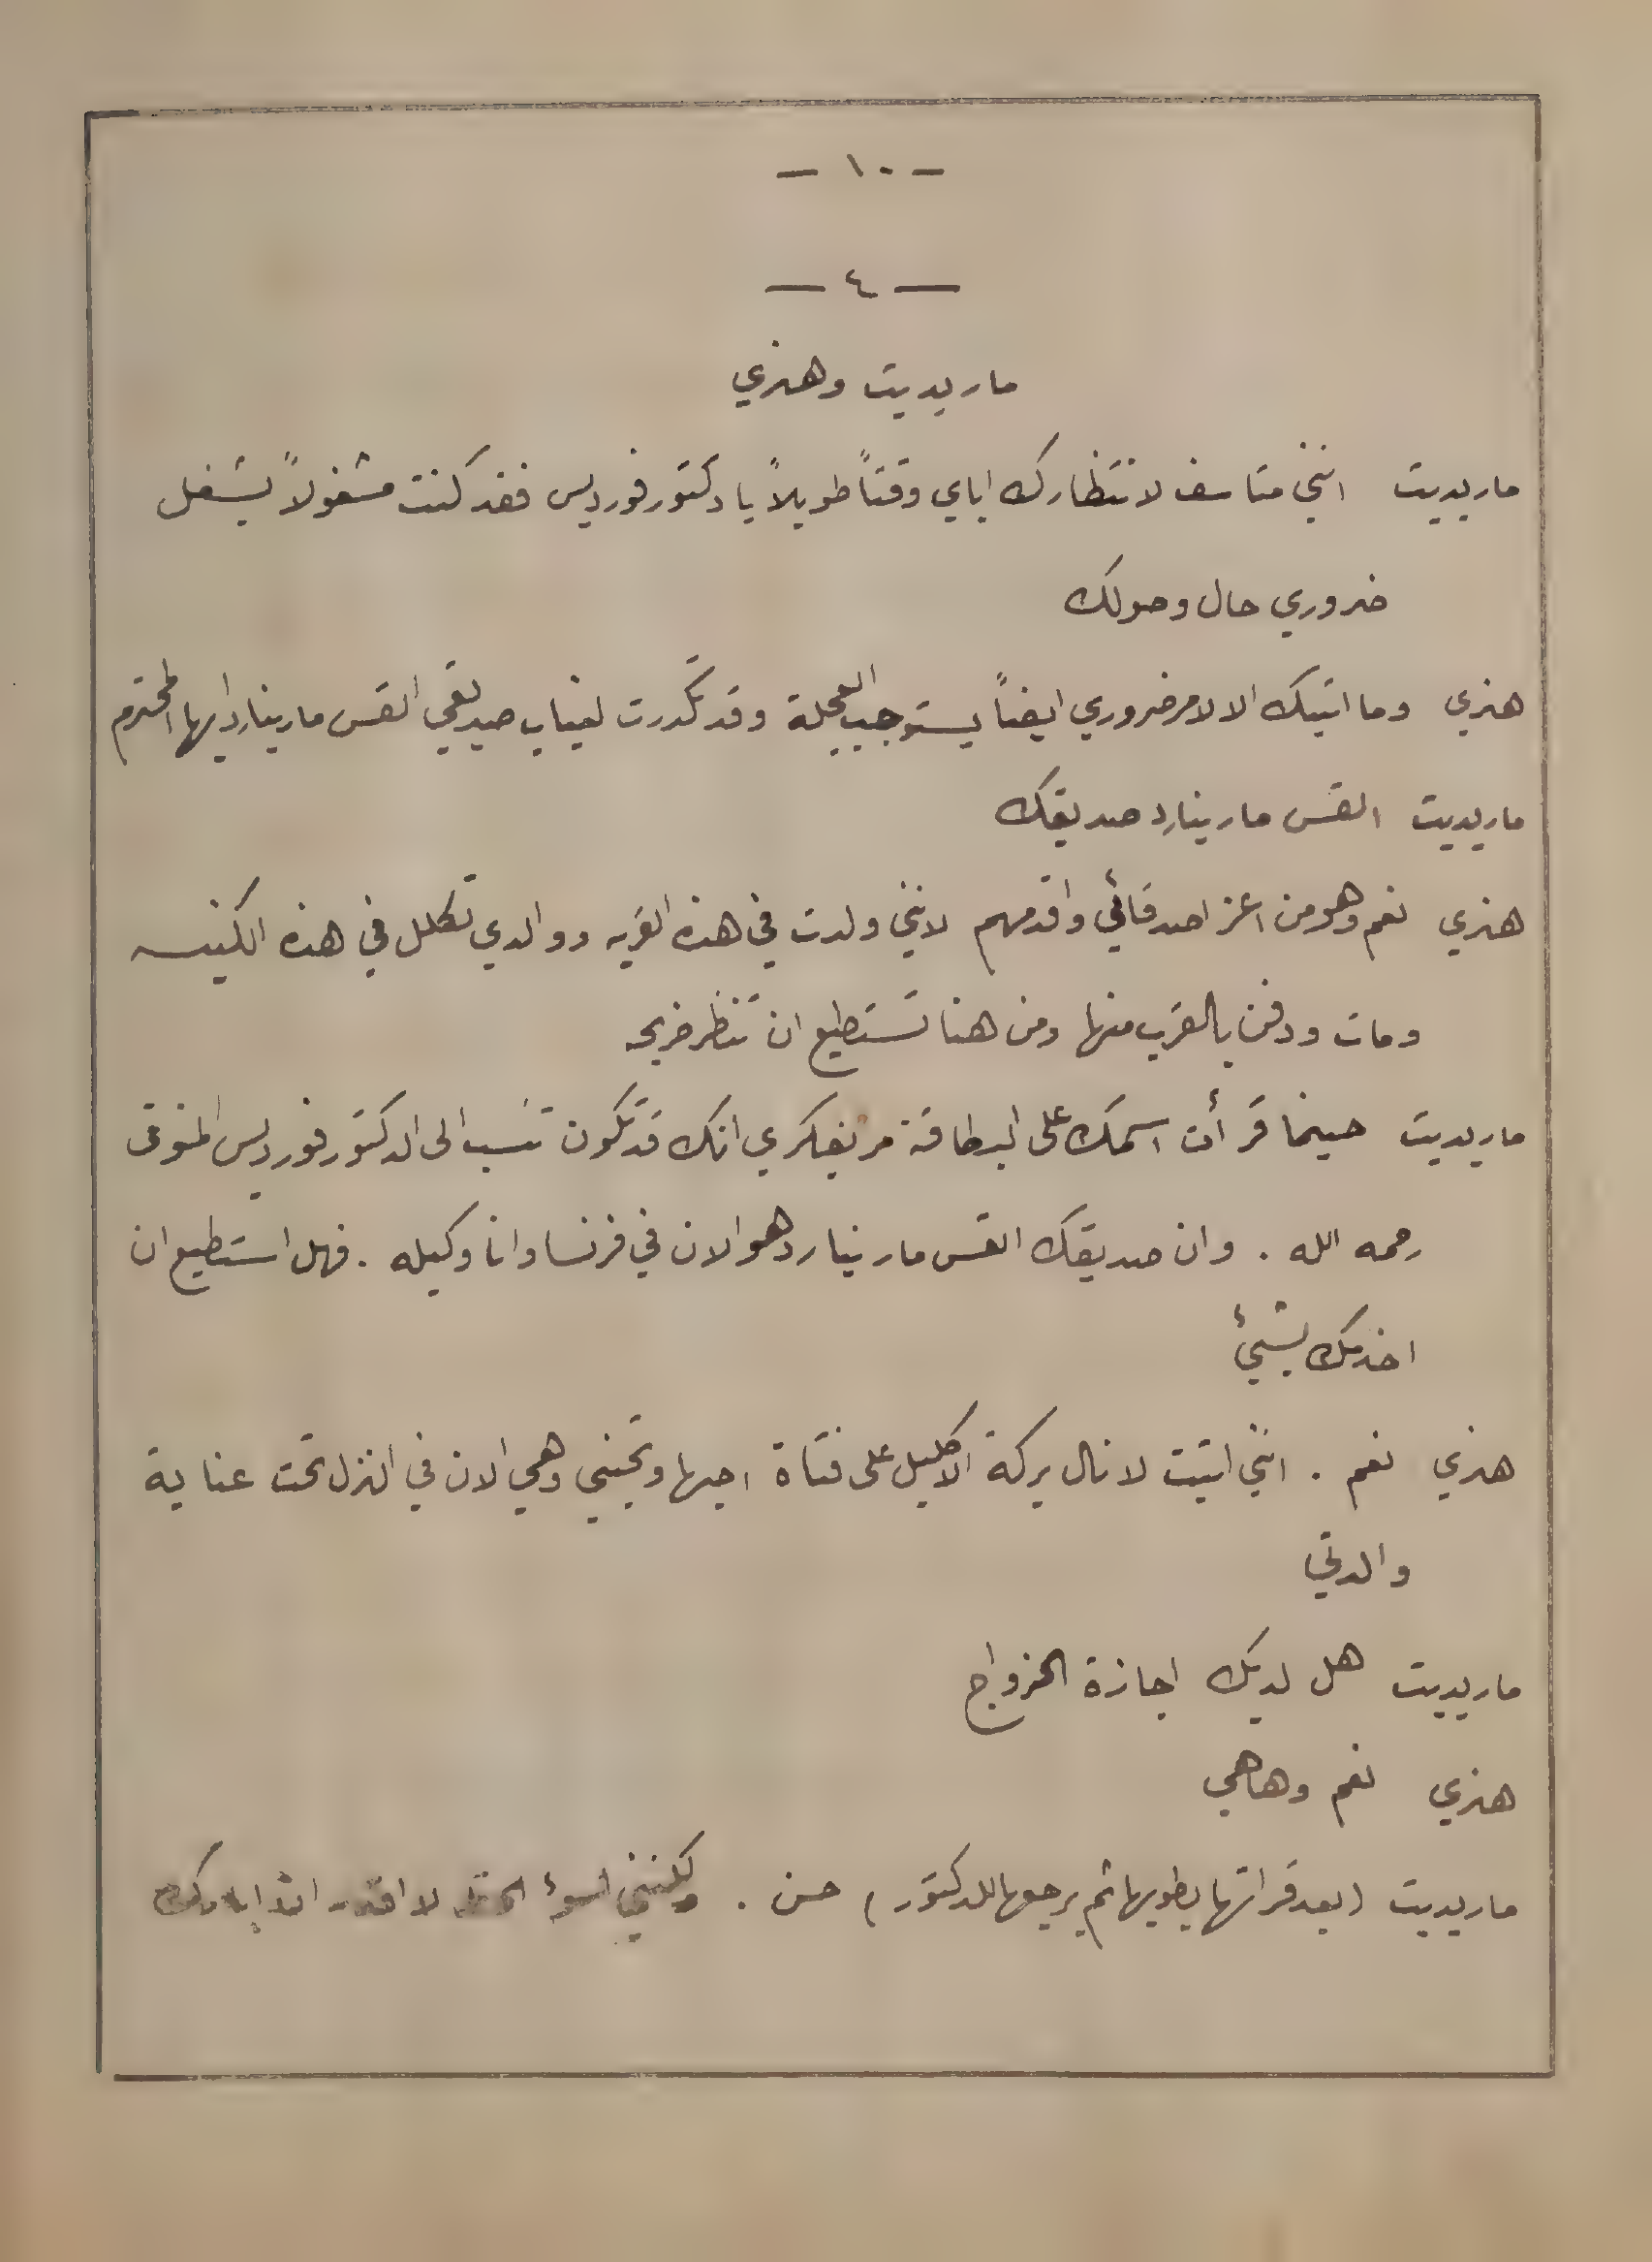 - ١٠ -
- ٤ -
ماريديت وهنري
ماريديت انني متاسف لانتظارك اياي وقتاً طويلاً يا دكتور فورديس فقد كنت مشغولاً بشغل
ضروري حال وصولك
هنري وما اتيتك الا لامر ضروري ايضاً يستوجب العجلة وقد تكدرت لغياب صديقي القس مارينارد ايها المحترم
ماريديت القس مارينارد صديقك
هنري نعم وهو من اعز اصدقائي واقدمهم لانني ولدت في هذه القريه ووالدي تكلل في هذه الكنيسه
ومات ودفن بالقرب منها ومن هنا تستطيع ان تنظر ضريحه
ماريديت حينما قرأت اسمك على البطاقة مر بفكري انك قد تكون تنسب الى الدكتور فورديس المتوفى
رحمه الله . وان صديقك القس مارينارد هو الان في فرنسا وانا وكيله . فهل استطيع ان
اخدمك بشيئ
هنري نعم . انني اتيت لانال بركة الاكليل على فتاة احبها وتحبني وهي الان في النزل تحت عناية
والدتي
ماريديت هل لديك اجازة الزواج
هنري نعم وهاهي
ماريديت (بعد قراتها يطويها ثم يرجعها للدكتور) حسن . ولكنني لسوء الحظ لا اقدر ان